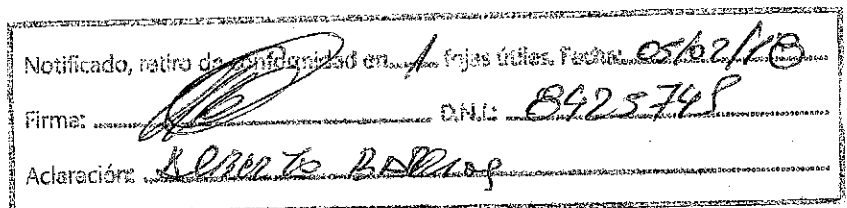 Notificado, retiro de conformidad en 1 fojas útiles. Fecha: 05/02/18
Firma: D.N.I.: 8425748
Aclaración: Alberto